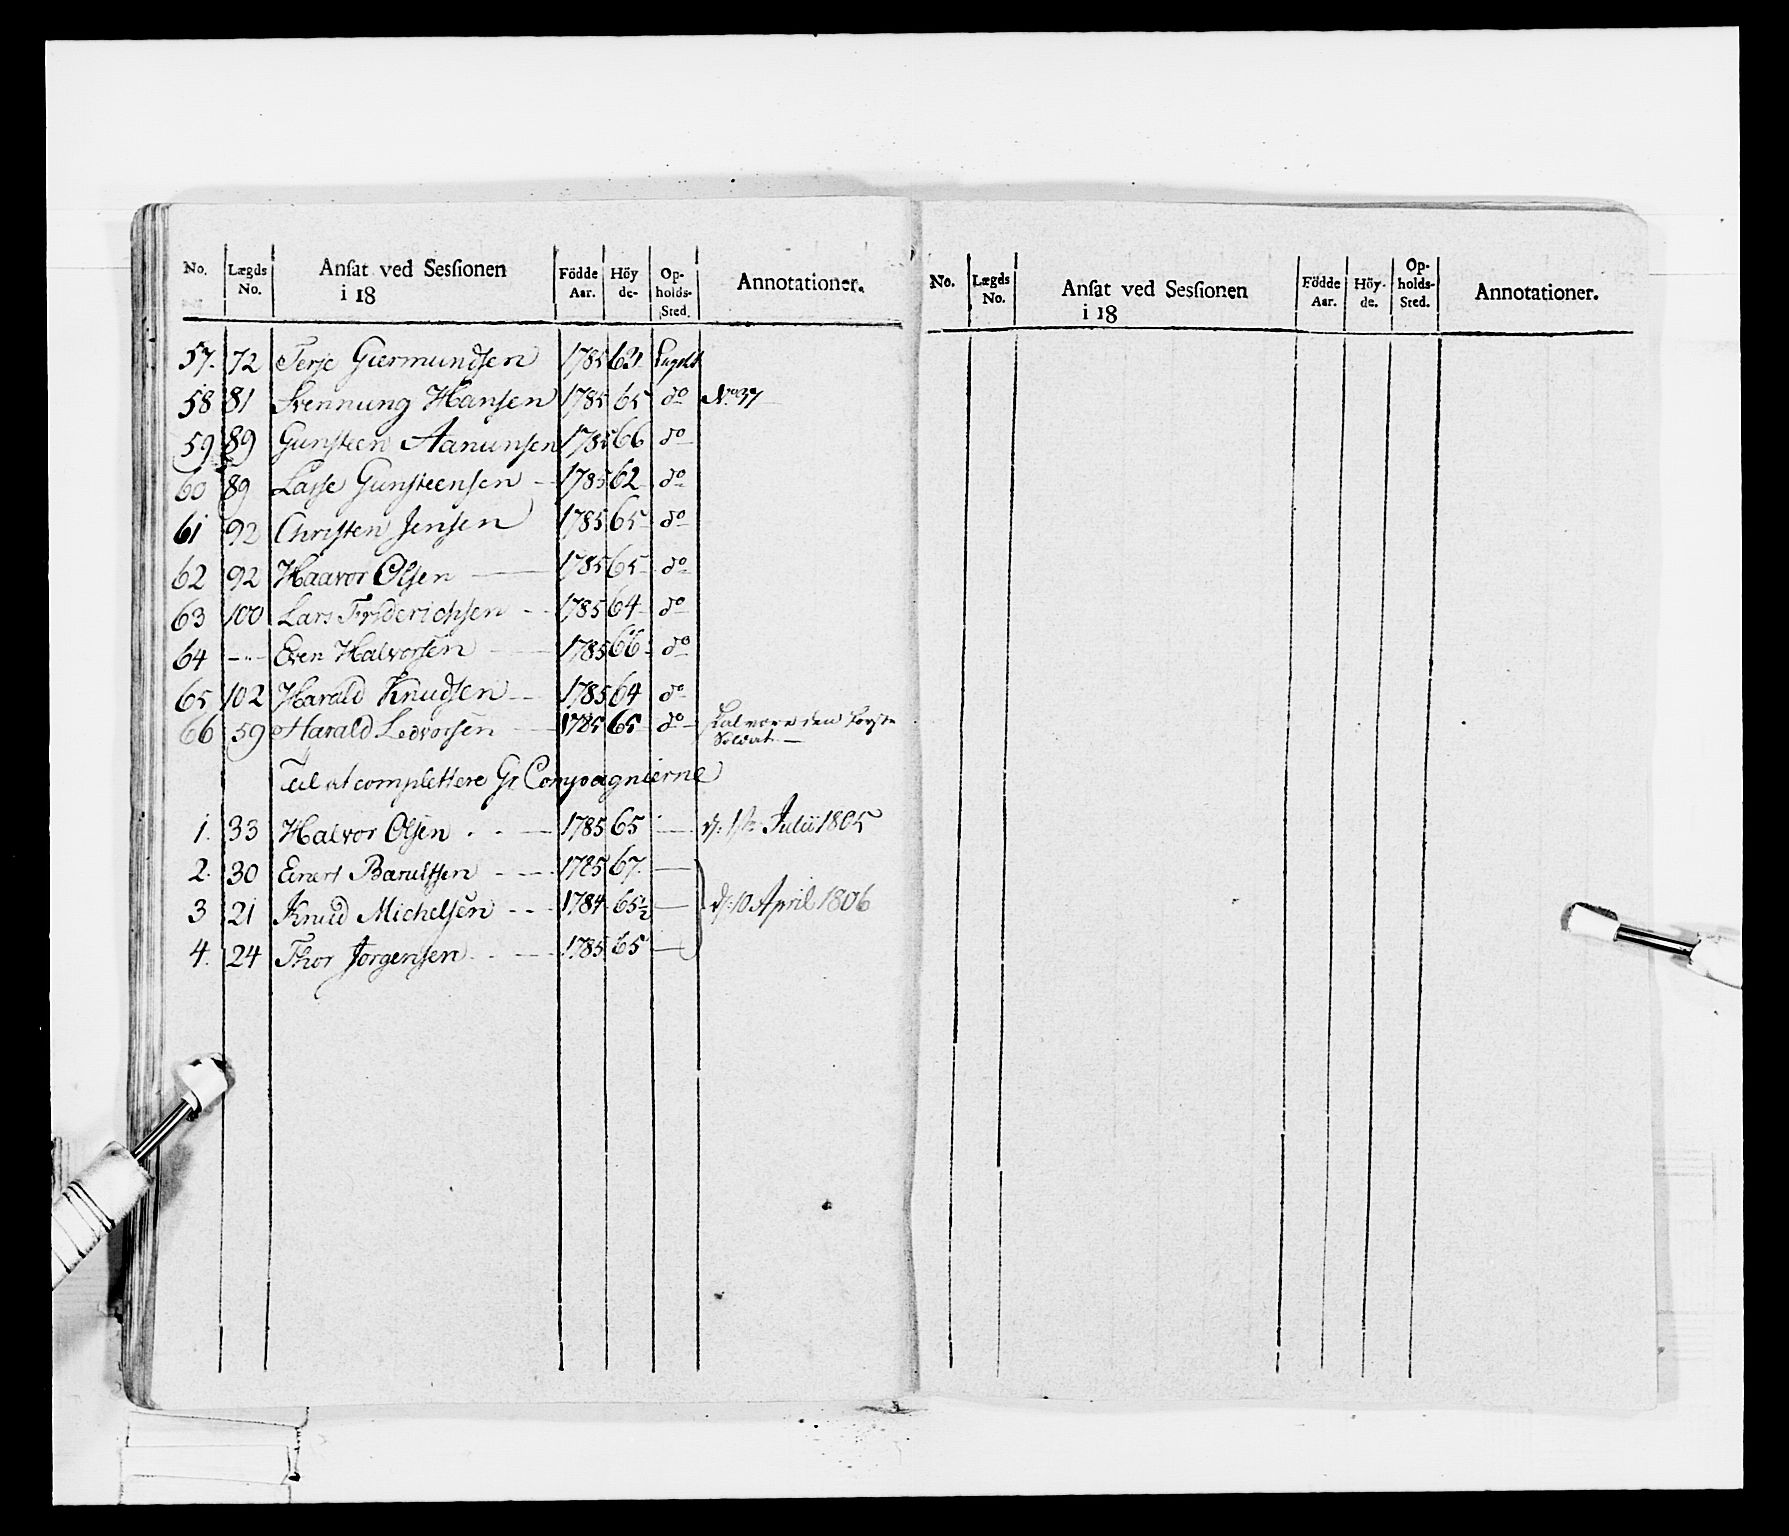 No. Lægds No. Ansat ved Sessionen i 18 Födde Aar. Höy de- Op- holds- Sted. Annotationer.
57. 72 Terje Giermundsen 1785
58 81 Svennung Hansen 1785 65 do No 37
59 89 Gunsteen Aanunsen 1785 66 do
60 89 Lasse Gunsteensen - 1785 62 do
61 92 Christen Jensen 1785 65 do
62 92 Haavor Olsen — 1785 65 do
63 100 Lars Friderichsen - - 1785 64 do
64 -"- Even Halvorsen — 1785 66 do
65 102 Harald Knudsen - - 1785 64 do
66 59 Harald Ledvorsen — 1785 65 do
Soldat —
Til at complettere Gr Compagnierne
1. 33 Halvor Olsen . - — 1785 65 — d: 1ste Julii 1805
2. 30 Einert Barultsen - - - 1785 67. —
3 21 Knud Michelsen - - - 1784 65½ — d: 10 April 1806
4. 24 Thor Jörgensen - - — 1785 65 —
No. Lægds No. Ansat ved Sessionen i 18 Födde Aar. Höy- de. Op- holds- Sted. Annotationer.